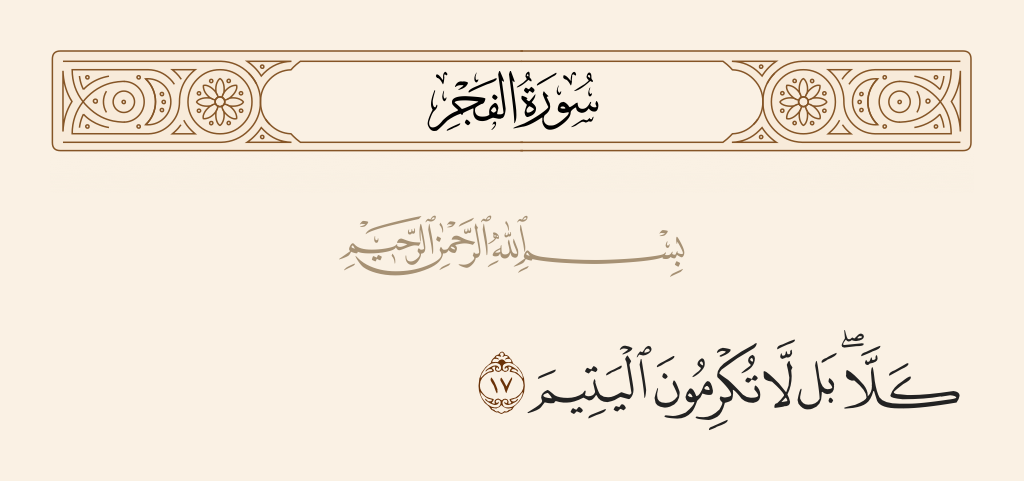 سُورَةُ الفَجْرِ
بِسْمِ ٱللَّهِ ٱلرَّحْمَٰنِ ٱلرَّحِيمِ
كَلَّاۖ بَل لَّا تُكْرِمُونَ ٱلْيَتِيمَ ١٧